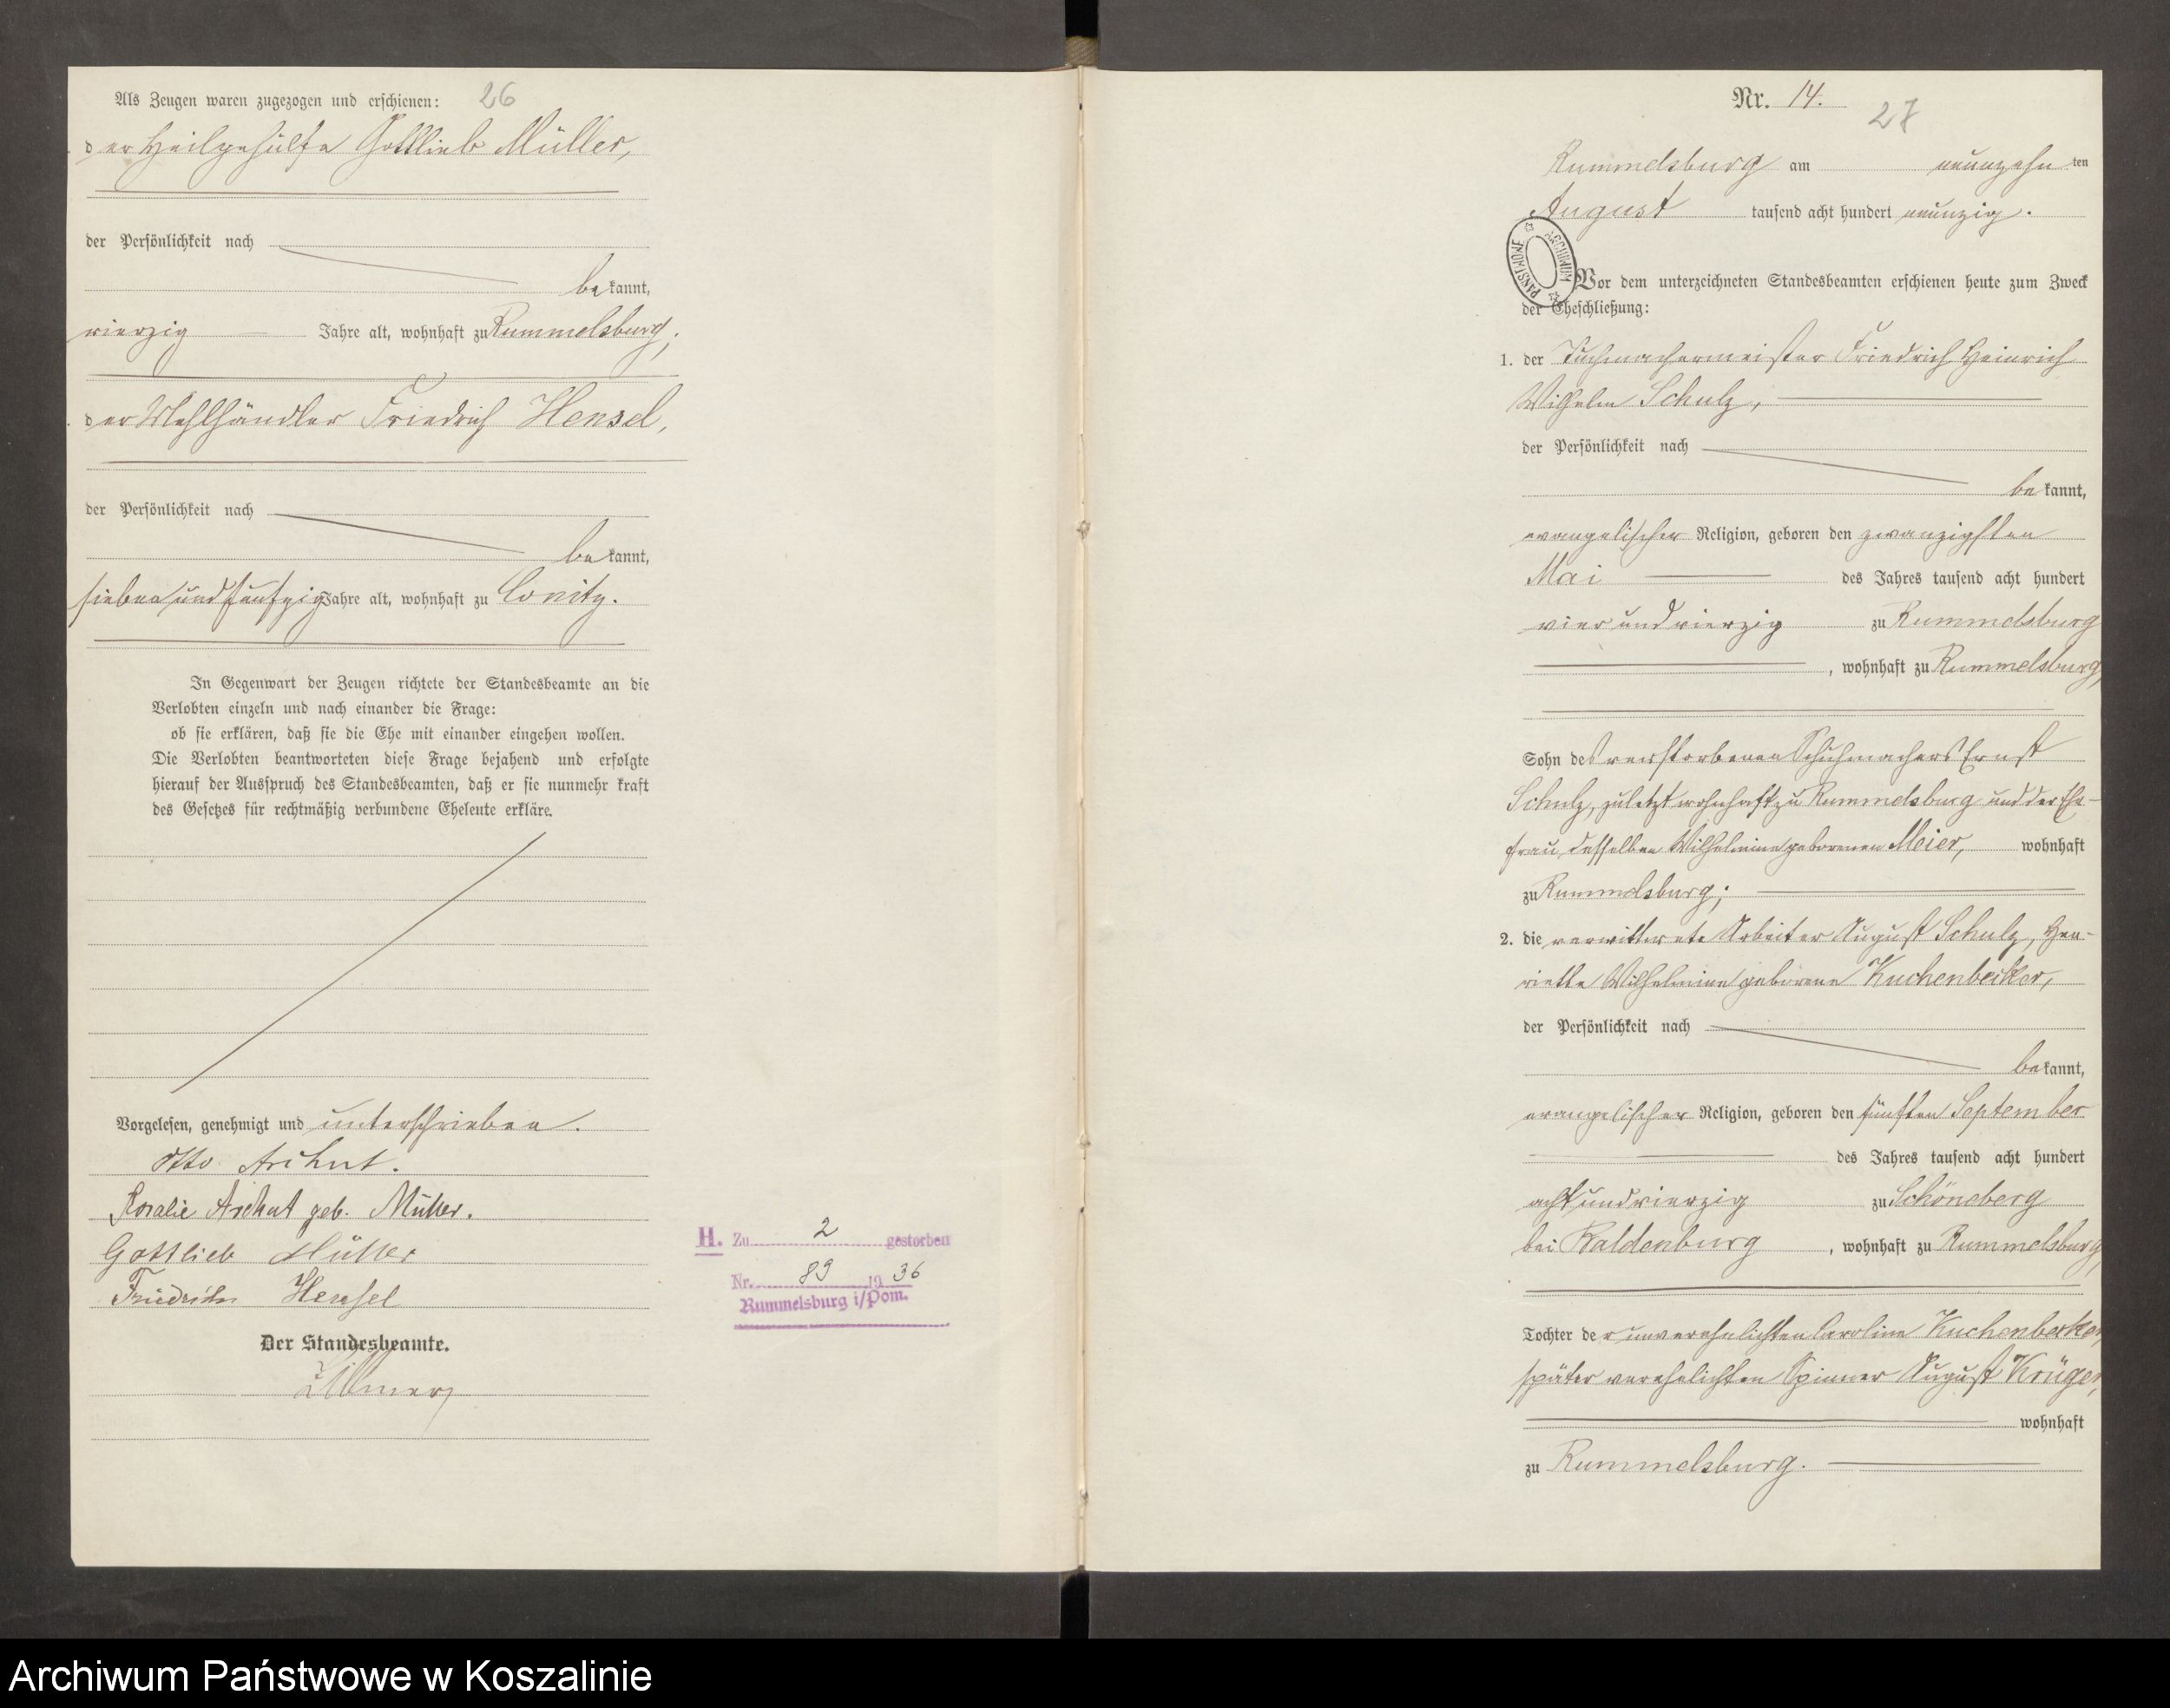 Als Zeugen waren zugezogen und erschienen: 26
der Heilgehülfe Gottlieb Müller,
der Persönlichkeit nach
bekannt,
vierzig Jahre alt, wohnhaft zu Rummelsburg;
der Mehlhändler Friedrich Hensel,
der Persönlichkeit nach
bekannt,
siebenundfünfzig Jahre alt, wohnhaft zu Conitz.
In Gegenwart der Zeugen richtete der Standesbeamte an die
Verlobten einzeln und nach einander die Frage:
ob sie erklären, daß sie die Ehe mit einander eingehen wollen.
Die Verlobten beantworteten diese Frage bejahend und erfolgte
hierauf der Ausspruch des Standesbeamten, daß er sie nunmehr kraft
des Gesetzes für rechtmäßig verbundene Eheleute erkläre.
Vorgelesen, genehmigt und unterschrieben.
Otto Aschut.
Rosalie Aschut geb. Müller.
Gottlieb Müller
Friedrich Hensel
Der Standesbeamte.
H. Zu 2 gestorben
Nr. 83 19 36
Rummelsburg i/Pom.
Nr. 14.
27
Rummelsburg am neunzehn ten
August tausend acht hundert neunzig.
ARCHIWUM PAŃSTWOWE
Vor dem unterzeichneten Standesbeamten erschienen heute zum Zweck
der Eheschließung:
1. der Tuchmachermeister Friedrich Heinrich
Wilhelm Schulz,
der Persönlichkeit nach
bekannt,
evangelischer Religion, geboren den zwanzigsten
Mai des Jahres tausend acht hundert
vierundvierzig zu Rummelsburg
, wohnhaft zu Rummelsburg,
Sohn des verstorbenen Schuhmachers Ernst
Schulz, zuletzt wohnhaft zu Rummelsburg und der Ehe-
frau desselben Wilhelmine geborenen Meier, wohnhaft
zu Rummelsburg;
2. die verwittwete Arbeiter August Schulz, Hen-
riette Wilhelmine geborene Kuchenbecker,
der Persönlichkeit nach
bekannt,
evangelischer Religion, geboren den fünften September
des Jahres tausend acht hundert
achtundvierzig zu Schöneberg
bei Baldenburg, wohnhaft zu Rummelsburg,
Tochter der unverehelichten Caroline Kuchenbecker,
später verehelichten Spinner August Krüger,
wohnhaft
zu Rummelsburg.
Archiwum Państwowe w Koszalinie